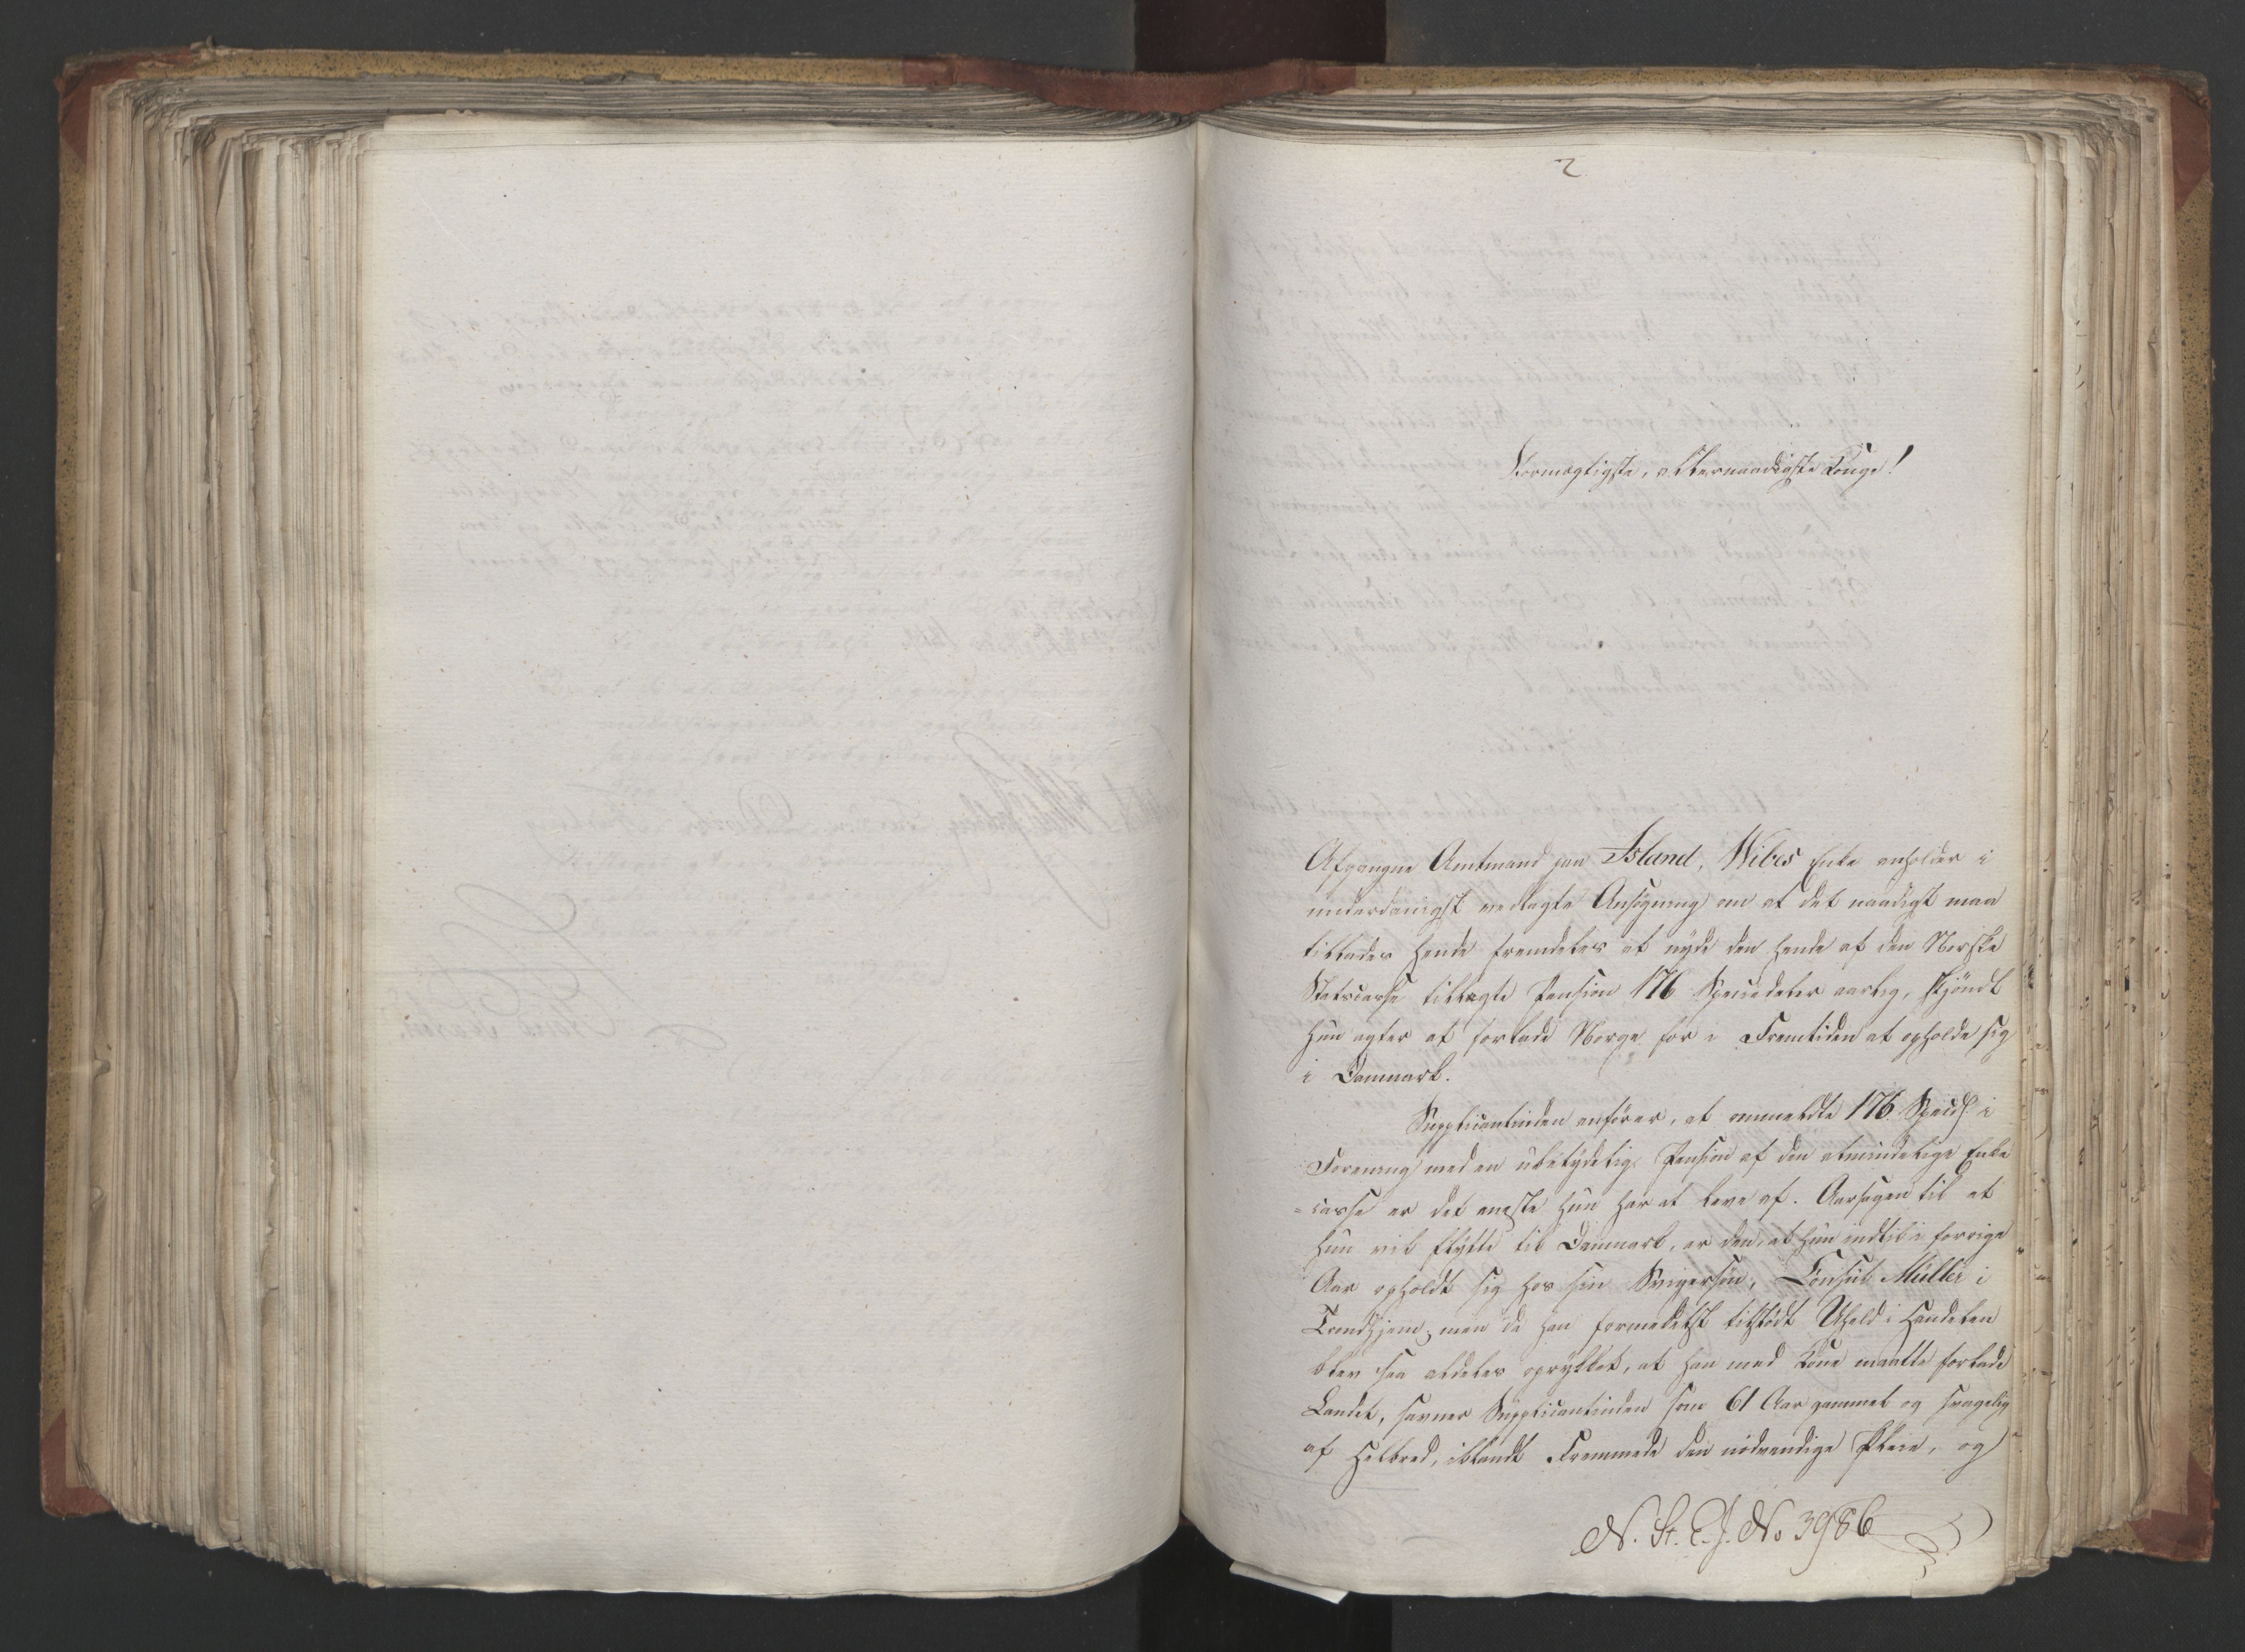 2
Stormægtigste, allernaadigste Konge!
Afgangne Amtmand paa Island, Wibes Enke anholder i
underdanigst vedlagte Ansøgning om at det naadigst maa
tillades hende fremdeles at nyde den hende af den Norske
Statscasse tillagte Pension 176 Speciedaler aarlig, skjöndt
hun agter at forlade Norge for i Fremtiden at opholde sig
i Danmark.
Supplicantinden anfører, at ommeldte 176 Specds. i
Forening med en ubetydelig Pension af den almindelige Enke
=casse er det eneste hun har at leve af. Aarsagen til at
hun vil flytte til Danmark, er den, at hun indtil i forrige
Aar opholdt sig hos sin Svigersön, Consul Müller i
Trondhjem; men da han formedelst tilstødt Uheld i Handelen
blev saa aldeles oprykket, at han med Kone maatte forlade
Landet, savner Supplicantinden som 61 Aar gammel og svagelig
af Helbred, iblandt Fremmede den nödvendige Pleie, og
N. St. E. J. No 3986